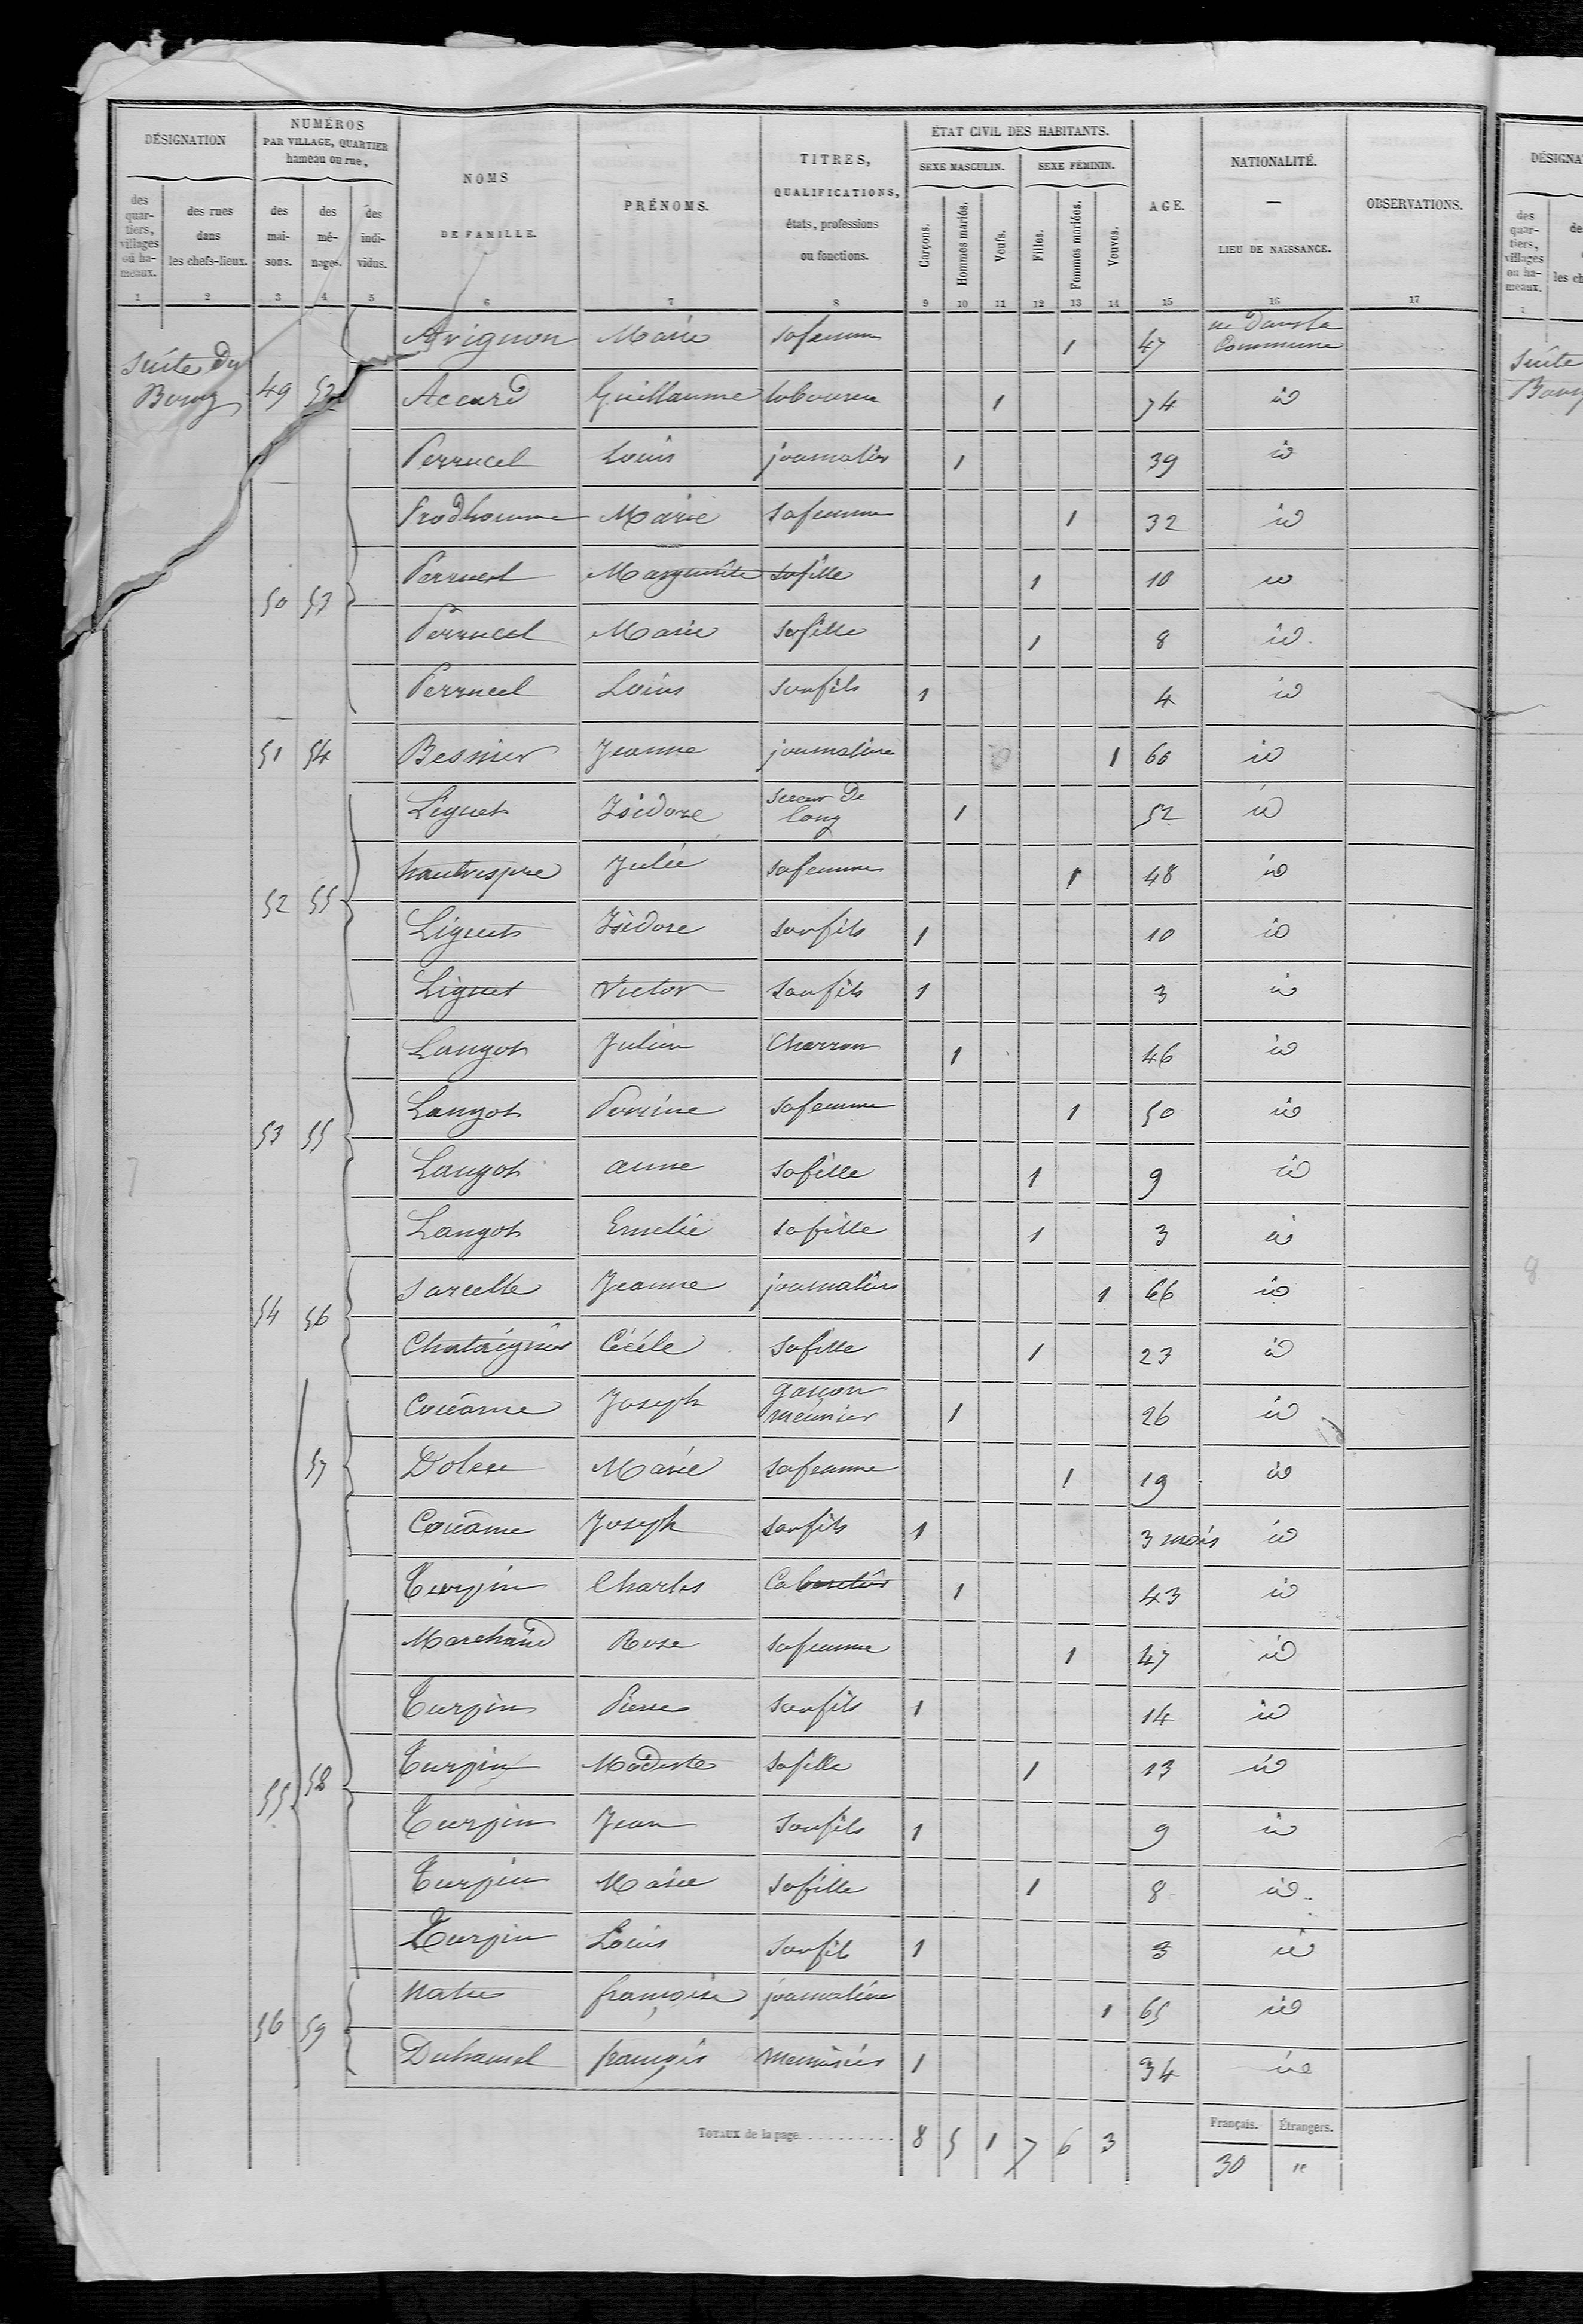 DÉSIGNATION
NUMÉROS
PAR VILLAGE, QUARTIER
hameau ou rue,
NOMS
DE FAMILLE.
PRÉNOMS.
TITRES,
QUALIFICATIONS,
états, professions
ou fonctions.
ÉTAT CIVIL DES HABITANTS.
SEXE MASCULIN. SEXE FÉMININ.
AGE.
NATIONALITÉ.
—
LIEU DE NAISSANCE.
OBSERVATIONS.
des quar-tiers, villages ou ha-meaux.
des rues dans les chefs-lieux.
des mai-sons.
des mé-nages.
des indi-vidus.
Garçons. Hommes mariés. Veufs. Filles. Femmes mariées. Veuves.
1 2 3 4 5 6 7 8 9 10 11 12 13 14 15 16 17
Suite du Bourg
Avignon Marie sa femme 1 47 né dans la Commune
49 52 Accard Guillaume laboureur 1 74 id
Perrucel Louis journalier 1 39 id
Prodhomme Marie sa femme 1 32 id
50 53 Perrucel Marguerite sa fille 1 10 id
Perrucel Marie sa fille 1 8 id
Perrucel Louis son fils 1 4 id
51 54 Besnier Jeanne journalière 1 60 id
Liguet Isidore scieur de long 1 52 id
Julie sa femme 1 48 id
52 55 Liguet Isidore son fils 1 10 id
Liguet Victor son fils 1 3 id
Langot Julien Charron 1 46 id
Langot Perrine sa femme 1 50 id
53 55 Langot anne sa fille 1 9 id
Langot Emelie sa fille 1 3 id
54 56 Sarcelle Jeanne journalière 1 66 id
Chataignier Cécile sa fille 1 23 id
Couâme Joseph garçon meunier 1 26 id
57 Marie sa femme 1 19 id
Couâme Joseph son fils 1 3 mois id
Turpin Charles Cabaretier 1 43 id
Marchand Rose sa femme 1 47 id
Turpin Pierre son fils 1 14 id
55 58 Turpin Modeste sa fille 1 13 id
Turpin Jean son fils 1 9 id
Turpin Marie sa fille 1 8 id
Turpin Louis son fils 1 3 id
56 59 françoise journalière 1 65 id
Duhamel françois menuisier 1 34 id
TOTAUX de la page.......... 8 5 1 7 6 3
Français. Étrangers.
30 "
7
DÉSIGNA
des quar-tiers, villages ou ha-meaux.
de
les ch
1
Suite
Bourg
8